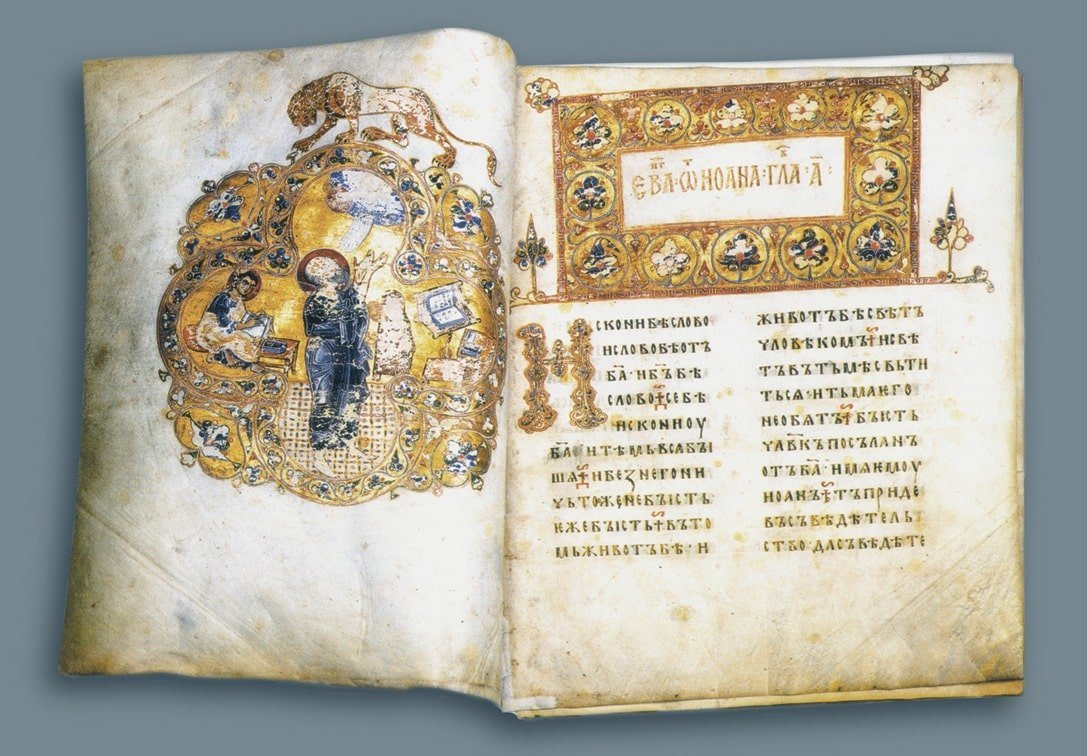 ЕВА·Ѡ·ИОАНА·ГЛА·А҃·
ИСКОНИБѢСЛОВО
ИСЛОВОБѢОТЪ
Б҃АИБ҃ЪБѢ
СЛОВОСЕБѢ
ИСКОНИОУ
Б҃АИТѢМЬВСАБЫ
ШѦИБЕЗНЕГОНИ
ЧЬТОЖЕНЕБЫСТЬ·
ѤЖЕБЫСТЬВЪТО
МЬЖИВОТЪБѢ·И
ЖИВОТЪБѢСВѢТЪ
ЧЛОВѢКОМЪИСВѢ
ТЪВЪТЬМѢСВЬТИ
ТЬСѦ·ИТЬМАѤГО
НЕОБѦТЪБЫСТЬ
ЧЛ҃ВКЪПОСЪЛАНЪ
ОТЪБ҃А·ИМѦѤМОУ
ИОАНЪТЪПРИДЕ
ВЪСЪВѢДѢТЕЛЬ
СТВО·ДАСЪВѢДѢТЕ